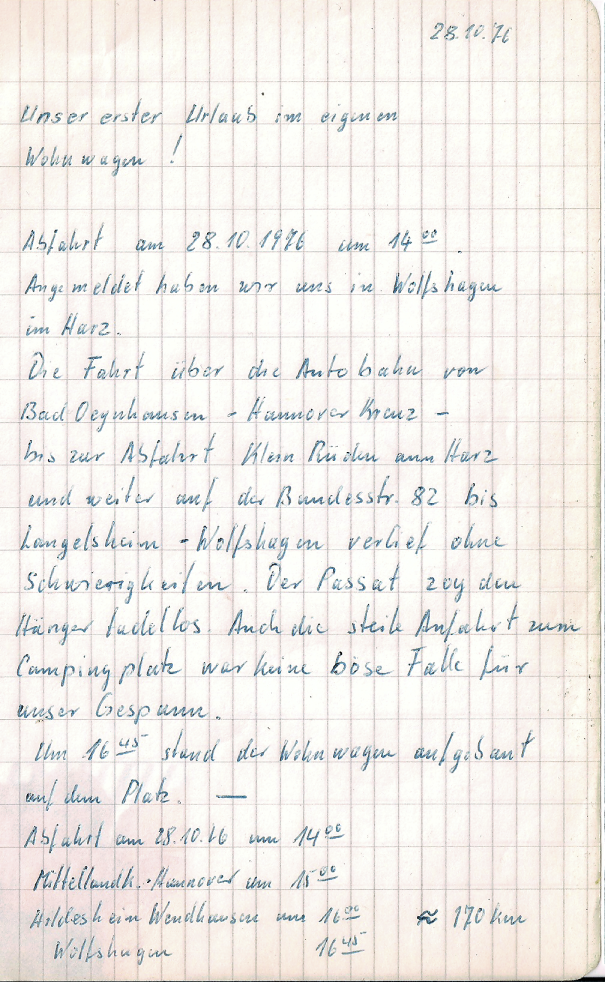 28.10.76
Unser erster Urlaub im eigenen
Wohnwagen !
Abfahrt am 28.10.1976 um 14 00.
Angemeldet haben wir uns in Wolfshagen
im Harz.
Die Fahrt über die Autobahn von
Bad Oeynhausen - Hannover Kreuz -
bis zur Abfahrt Klein Rüden am Harz
und weiter auf der Bundesstr. 82 bis
Langelsheim - Wolfshagen verlief ohne
Schwierigkeiten. Der Passat zog den
Hänger tadellos. Auch die steile Anfahrt zum
Campingplatz war keine böse Falle für
unser Gespann.
Um 16 45 stand der Wohnwagen aufgebaut
auf dem Platz. —
Abfahrt am 28.10.76 um 14 00
Mittellandk.-Hannover um 15 00
Hildesheim Wendhausen um 16 00 ≈ 170 km
Wolfshagen 16 45